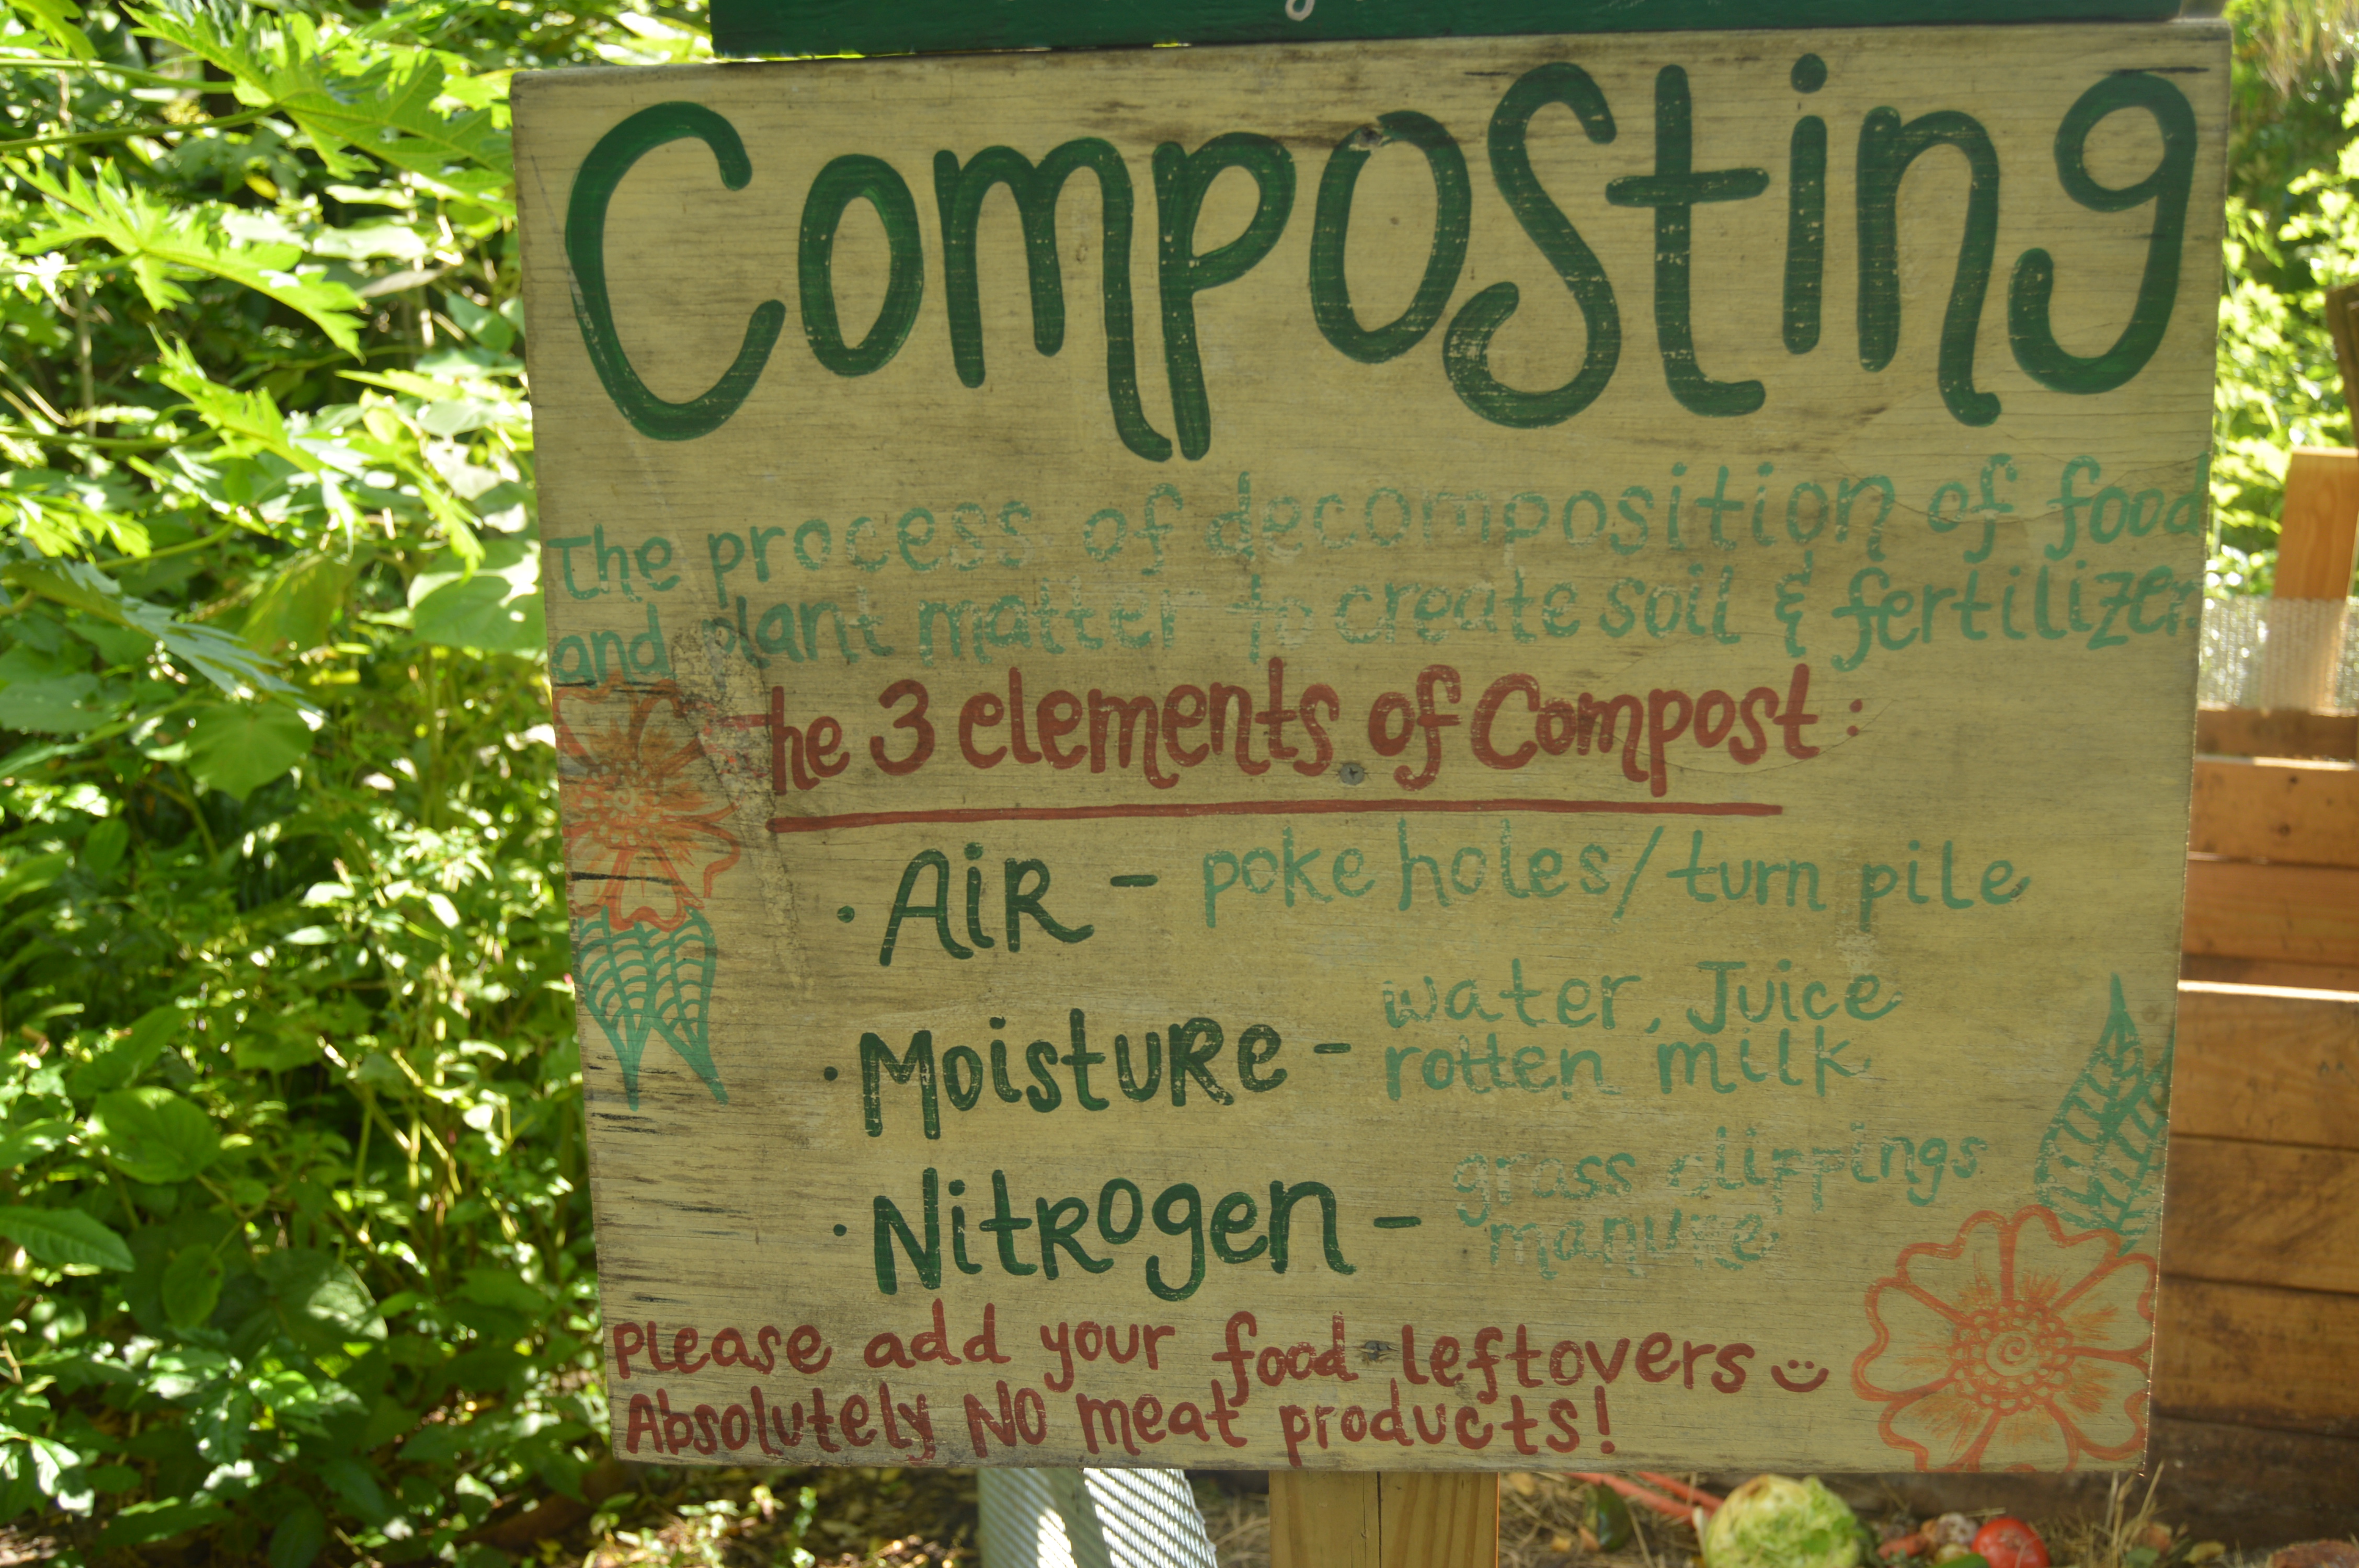 Composting
The process of decomposition of food
and plant matter to create soil & fertilizer.
The 3 elements of Compost:
· AiR - poke holes/turn pile
· MoistuRe - water, Juice
rotten milk
· NitRogen - grass clippings
manure
Please add your food leftovers
Absolutely NO meat products!